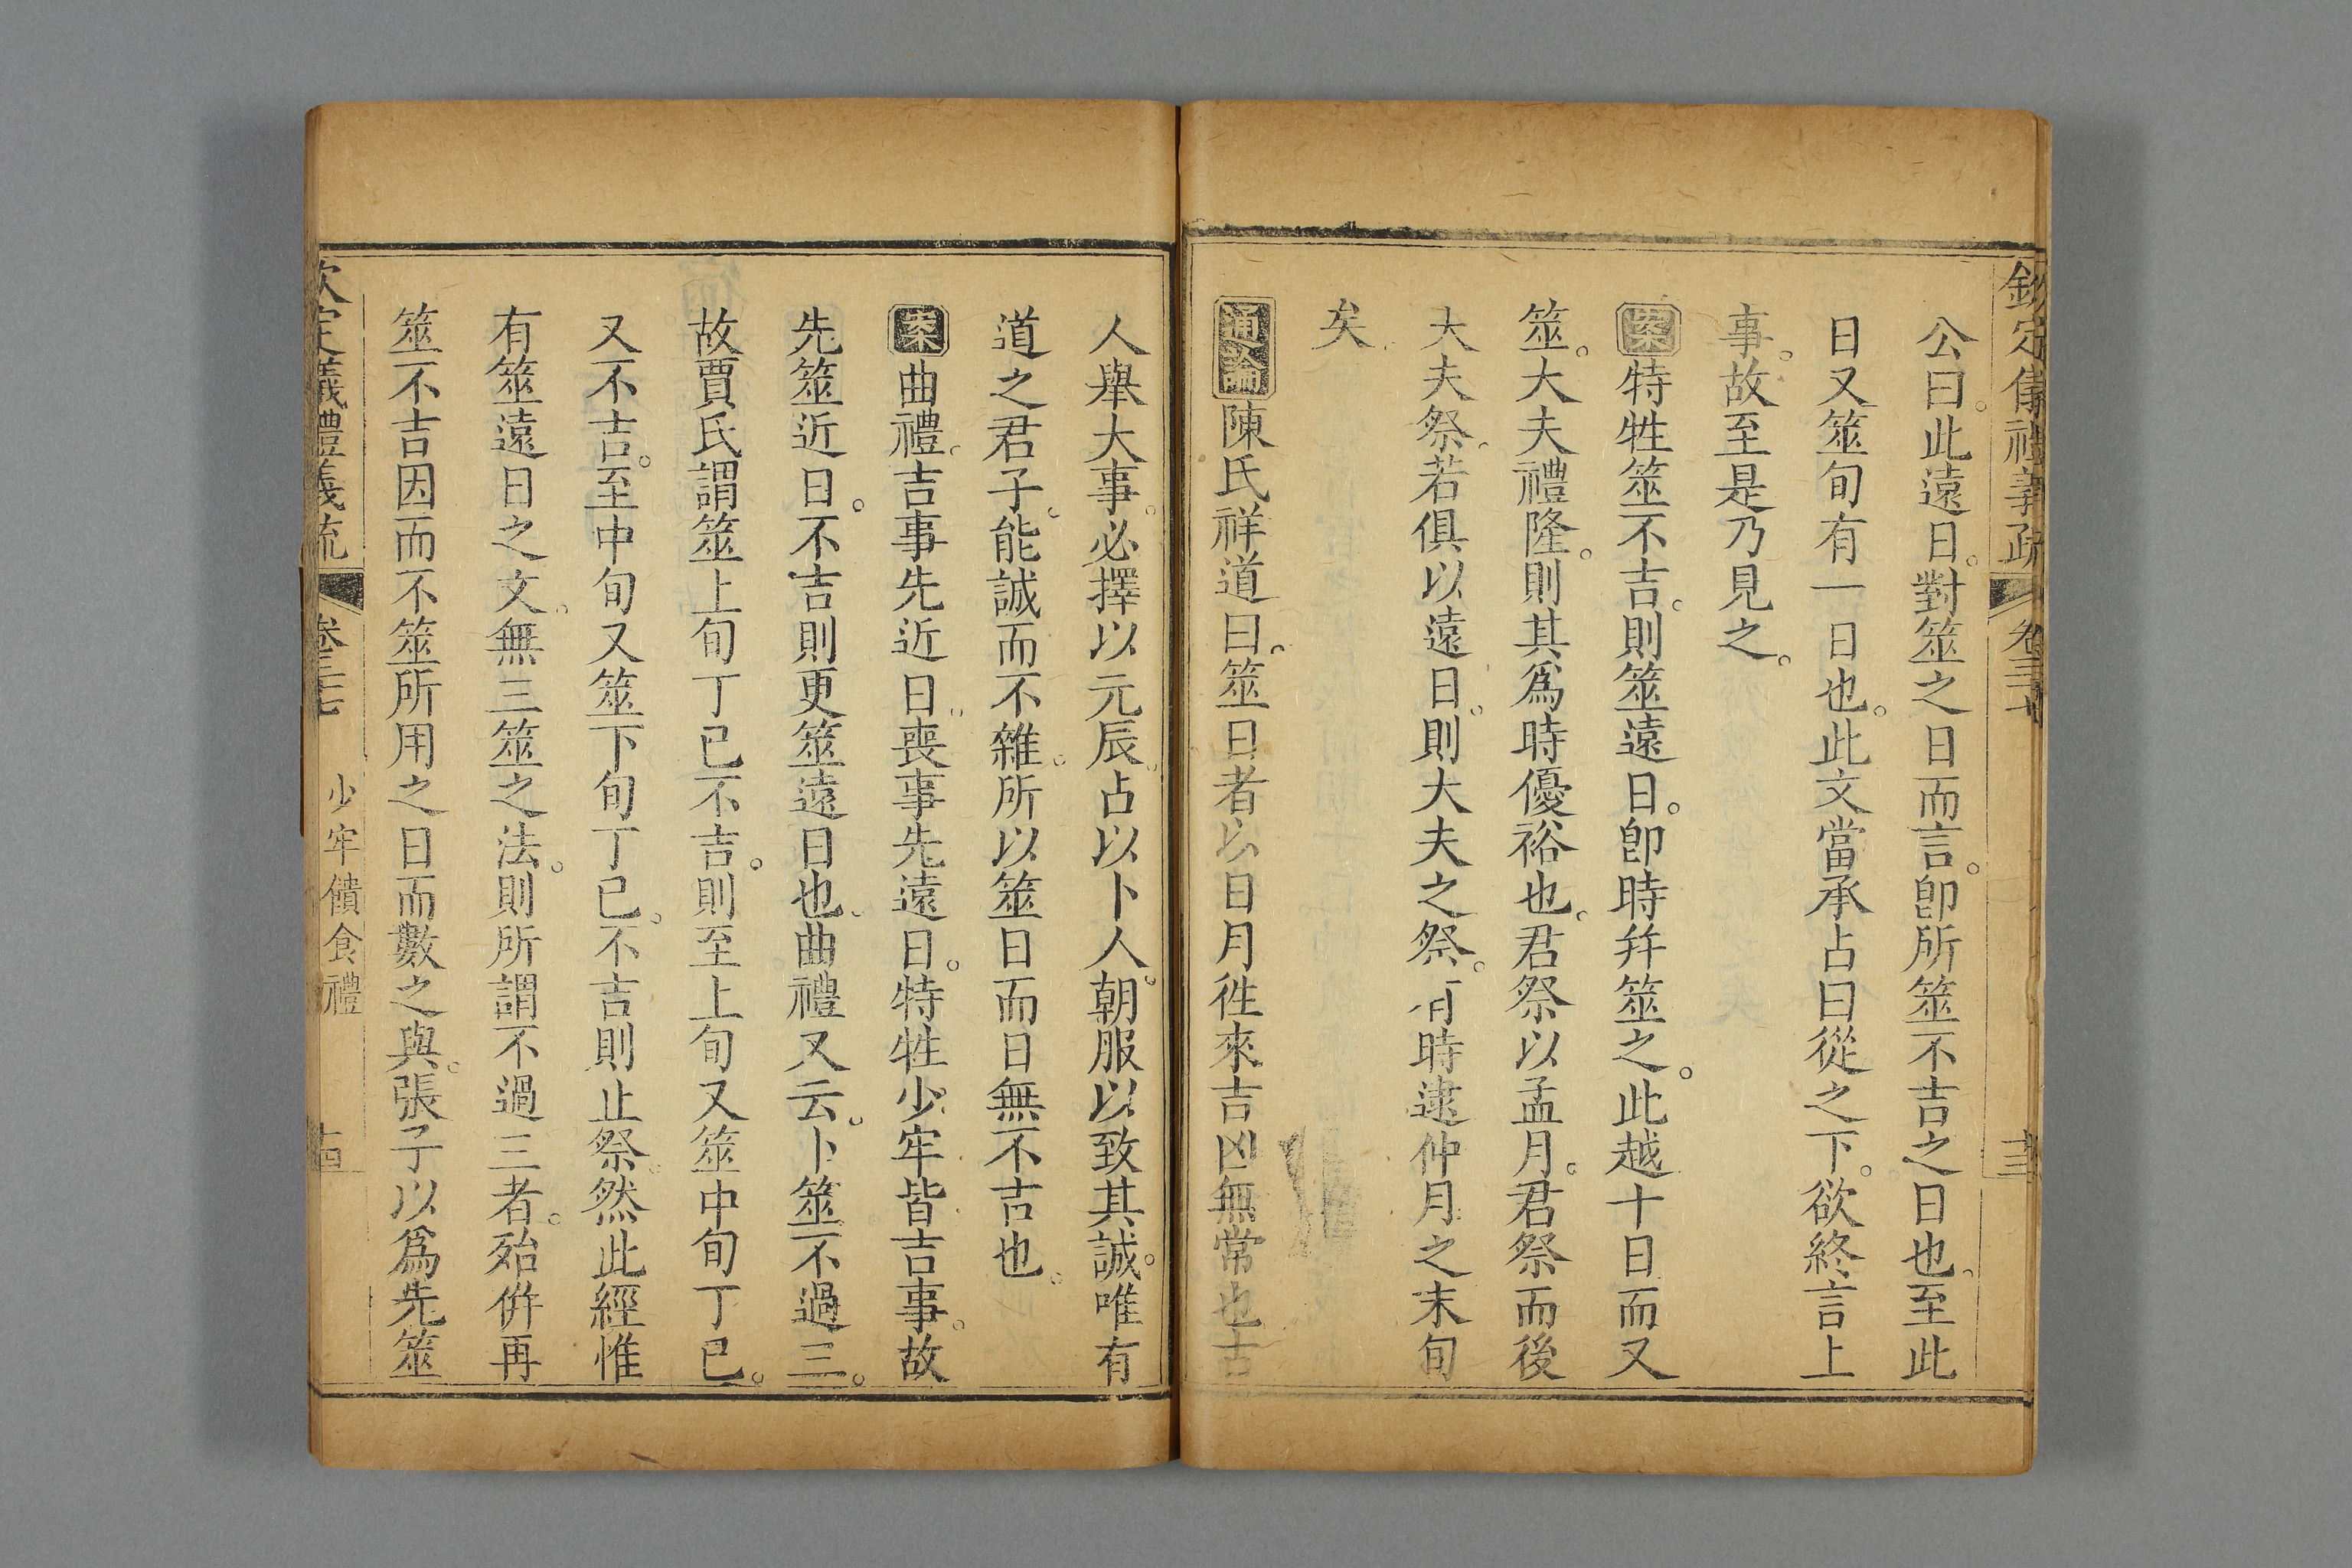 欽定儀禮義疏 卷三十七 十三
公曰此遠日。對筮之日而言。卽所筮不吉之日也。至此
日又筮旬有一日也。此文當承占曰從之下。欲終言上
事。故至是乃見之。
案特牲筮不吉。則筮遠日。卽時幷筮之。此越十日而又
筮。大夫禮隆。則其爲時優裕也。君祭以孟月。君祭而後
大夫祭。若俱以遠日。則大夫之祭。有時逮仲月之末旬
矣。
通論陳氏祥道曰。筮日者以日月徃來吉凶無常也古
人舉大事。必擇以元辰。占以卜人。朝服以致其誠。唯有
道之君子。能誠而不雜。所以筮日而日無不吉也。
案曲禮。吉事先近日。喪事先遠日。特牲少牢皆吉事。故
先筮近日。不吉則更筮遠日也。曲禮又云。卜筮不過三。
故賈氏謂筮上旬丁已不吉。則至上旬又筮中旬丁已。
又不吉。至中旬又筮下旬丁已。不吉則止祭。然此經惟
有筮遠日之文。無三筮之法。則所謂不過三者。殆倂再
筮不吉因而不筮所用之日而數之與。張子以爲先筮
欽定儀禮義疏 卷三十七 少牢饋食禮 十四